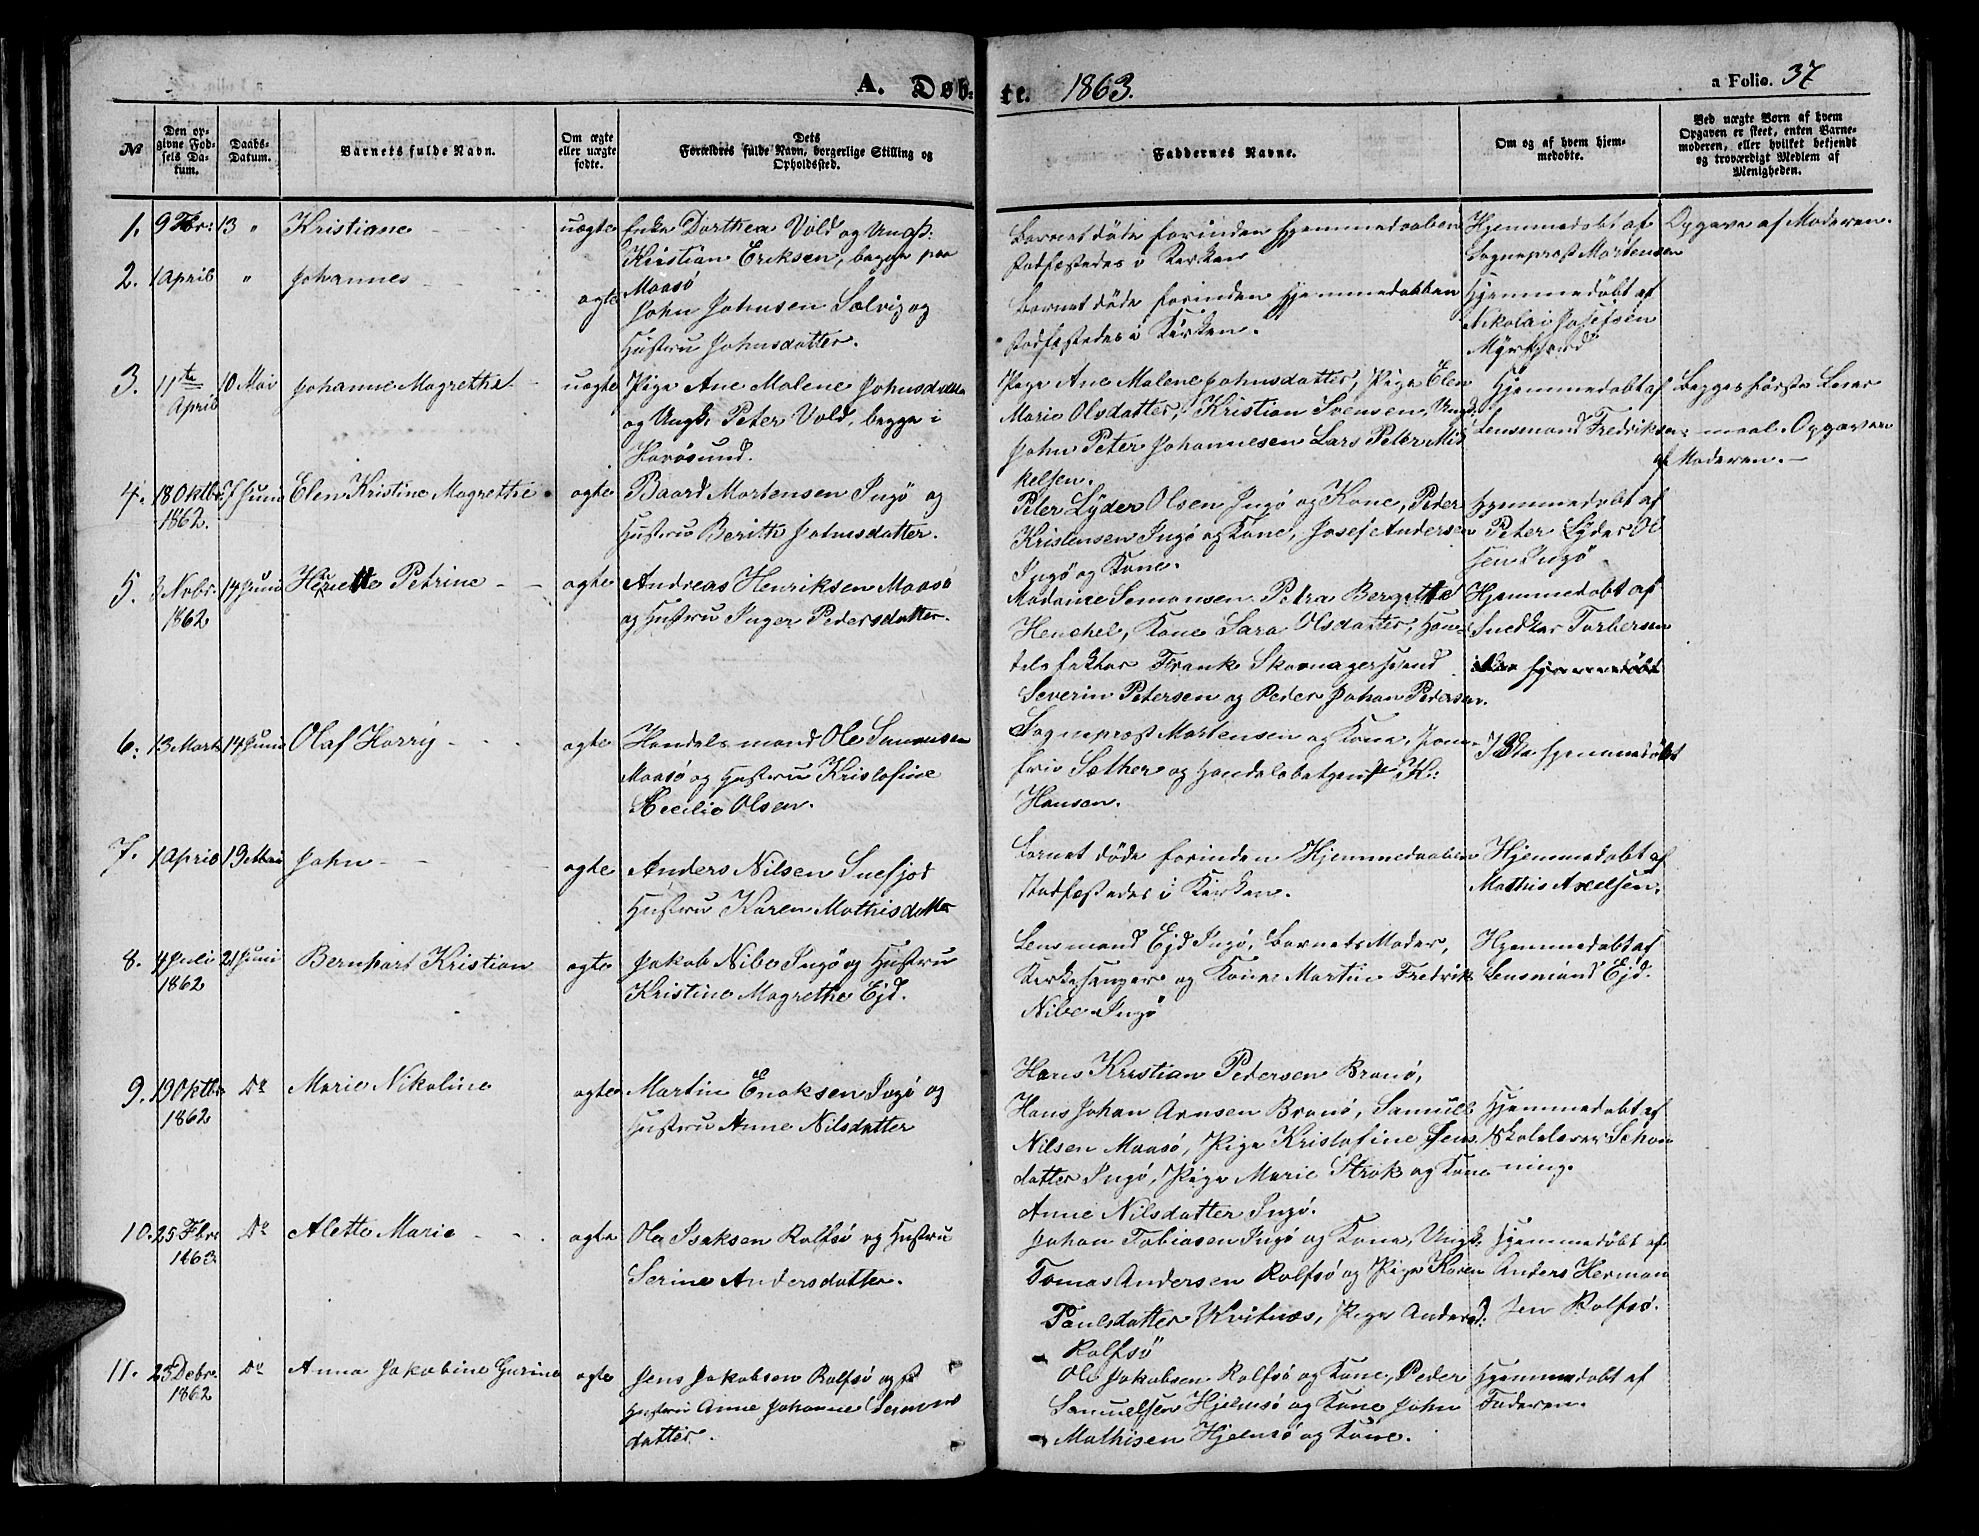 A. Døb-
te. 1863.
a Folio. 37
№
Den op-
givne Fød-
sels Da-
tum.
Daabs-
Datum.
Barnets fulde Navn.
Om ægte
eller uægte
fødte.
Dets
Forældres fulde Navn, borgerlige Stilling og
Opholdssted.
Faddernes Navne.
Om og af hvem hjem-
medøbte.
Ved uægte Børn af hvem
Opgaven er skeet, enten Barne-
moderen, eller hvilket bekjendt
og troværdigt Medlem af
Menigheden.
1. 9 Fbr: 13 " Kristiane uægte Enke Dorthea Vold og Ungk:
Kristian Eriksen, begge paa
Maasø
Barnet døde forinden Hjemmedaaben
stadfæstedes i Kirken
Hjemmedøbt af
Sogneprest Mortensen
Opgave af Moderen.
2. 1 April " Johannes ægte John Johnsen Sølvig og
Hustru Johnsdatter.
Barnet døde forinden Hjemmedøbben
stadfæstedes i Kirken.
Hjemmedøbt af
Nikolai Josefsen
Myrfjord
3. 11te
April
10 Mai Johanne Magrethe uægte Pige Ane Malene Johnsdatter
og Ungk. Peter Vold, begge i
Havøsund.
Pige Ane Malene Johnsdatter, Pige Elen
Marie Olsdatter, Kristian Svensen, Ungk.
John Peter Johannesen Lars Peter Mik
kelsen.
Hjemmedøbt af
Lensmand Fredriksen
Begges første Leier
maal. Opgaven
af Moderen.
4. 18 Oktbr
1862.
7 Juni Elen Kristine Magrethe ægte Baard Mortensen Ingø og
Hustru Berith Johnsdatter.
Peter Lyder Olsen Ingø og Kone, Peder
Kristensen Ingø og Kone, Josef Andersen
Ingø og Kone.
Hjemmedøbt af
Peter Lyder Ol
sen Ingø
5. 3 Novbr.
1862
14 Juni Petrine ægte Andreas Henriksen Maasø
og Hustru Inger Pedersdatter.
Madame Simonsen Petra Bergette
Henchel, Kone Sara Olsdatter, Han-
Frank Skomagersvend
Severin Petersen og Peder Johan Pedersen.
Hjemmedøbt af
Snedker Torbersen
6. 13 Marts 14 Juni Olaf Harry ægte Handelsmand Ole Simonsen
Maasø og Hustru Kristofine
Cecilie Olsen.
Sogneprest Mortensen og Kone, Jom-
fru Sæther og Handelsbetjent K.
Hansen.
Ikke hjemmedøbt
7. 1 April 13 Mai John ægte Anders Nilsen Snefjod
Hustru Karen Mathisdatter
Barnet døde forinden Hjemmedaaben
stadfæstedes i Kirken.
Hjemmedøbt af
Mathis Axelsen.
8. 4 Juli
1862
21 Juni Bernhart Kristian ægte Jakob Nibe Ingø og Hustru
Kristine Magrethe Ejd.
Lensmand Ejd Ingø, Barnets Moder,
Kirkesanger og Kone Martin Fredrik
Nibe Ingø
Hjemmedøbt af
Lensmand Ejd.
9. 19 Oktbr
1862
Do Marie Nikoline ægte Martin Enoksen Ingø og
Hustru Anne Nilsdatter
Hans Kristian Pedersen Branø,
Hans Johan Arnsen Branø, Samuel
Nilsen Maasø, Pige Kristofine Jens
datter Ingø, Pige Marie Strøk og Kone
Anne Nilsdatter Ingø.
Hjemmedøbt af
Skolelærer Schøn
ning.
10. 25 Fbr.
1863
Do Alette Marie ægte Ole Isaksen Rolfsø og Hustru
Serine Andersdatter.
Johan Tobiasen Ingø og Kone, Ungk:
Tomas Andersen Rolfsø og Pige Karen
Paulsdatter Kvitnæs, Pige Andersd:
Rolfsø
Hjemmedøbt af
Anders Herman
sen Rolfsø.
11. 25 Debr.
1862
Do Anna Jakobine Gurine ægte Jens Jakobsen Rolfsø og
Hustru Anne Johanne Simons
datter.
Ole Jakobsen Rolfsø og Kone, Peder
Samuelsen Hjelmsø og Kone John
Mathisen Hjelmsø og Kone.
Hjemmedøbt af
Faderen.